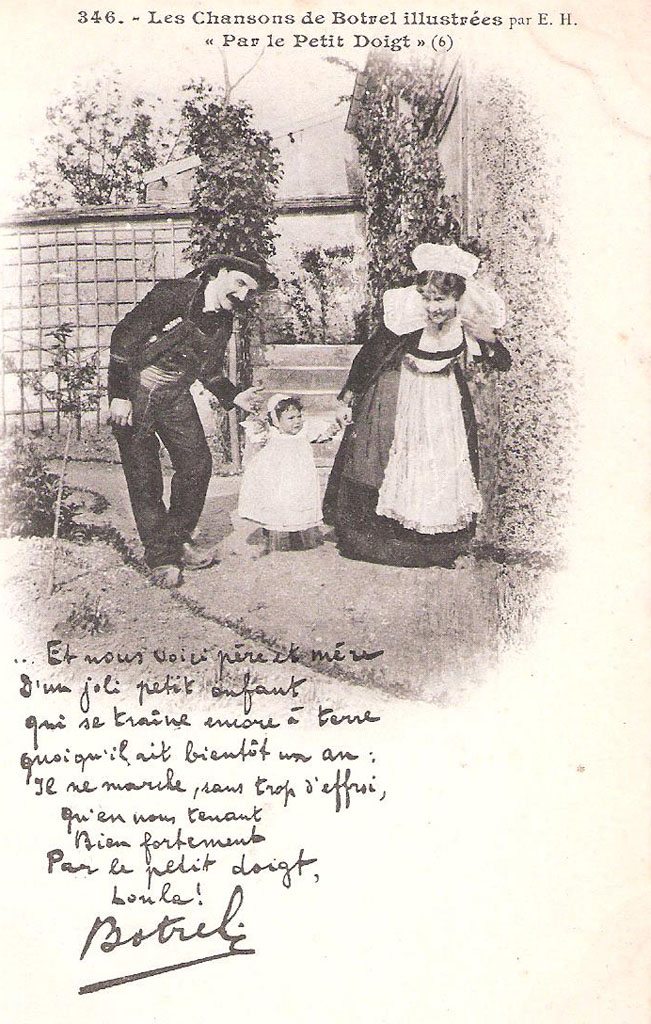 346. - Les Chansons de Botrel illustrées par E. H.
« Par le Petit Doigt » (6)
... Et nous voici père et mère
D'un joli petit enfant
qui se traîne encore à terre
quoiqu'il ait bientôt un an :
Il ne marche, sans trop d'effroi,
qu'en nous tenant
Bien fortement
Par le petit doigt,
Lonla !
Botrel